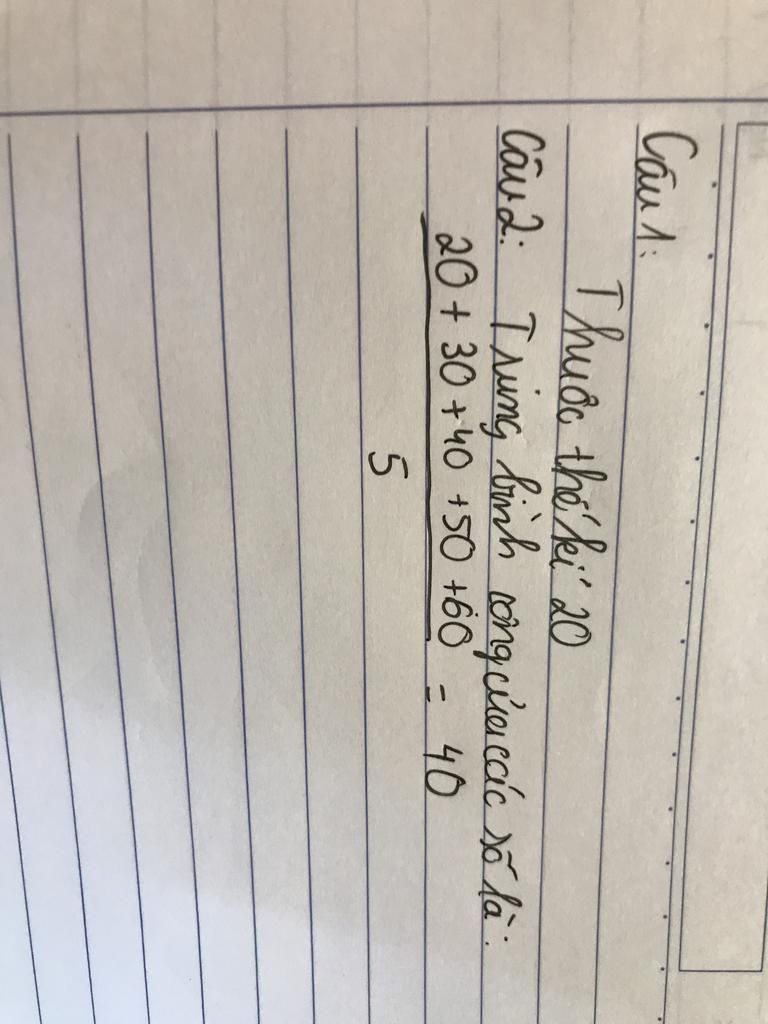 Câu 1:
Thuộc thế kỉ 20
Câu 2: Trung bình cộng của các số là:
20 + 30 + 40 + 50 + 60 = 40
5